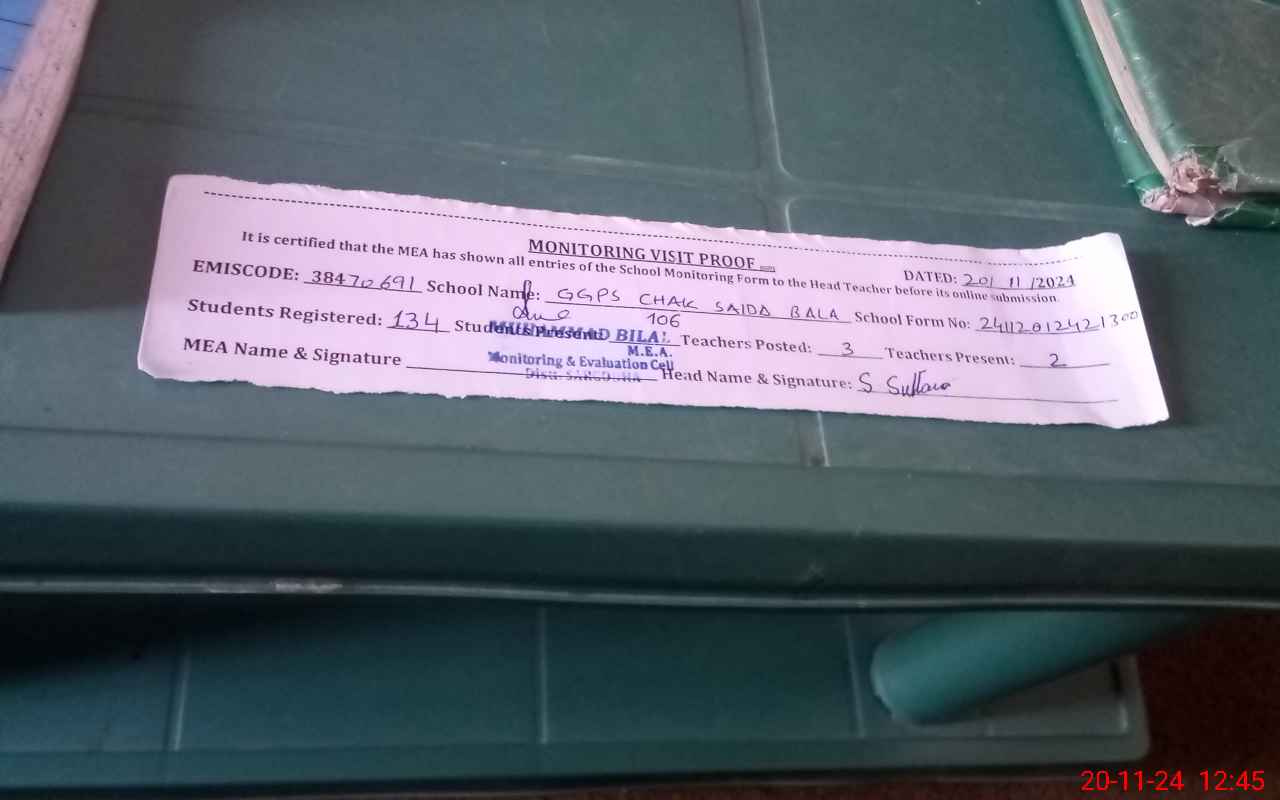 MONITORING VISIT PROOF
DATED: 20/ 11 /2024
It is certified that the MEA has shown all entries of the School Monitoring Form to the Head Teacher before its online submission.
EMISCODE: 38470691 School Name: GGPS CHAK SAIDA BALA School Form No:
Students Registered: 134 Students Present: 106 Teachers Posted: 3 Teachers Present: 2
MUHAMMAD BILAL
M.E.A.
Monitoring & Evaluation Cell
MEA Name & Signature Head Name & Signature: S Sultana
20-11-24 12:45